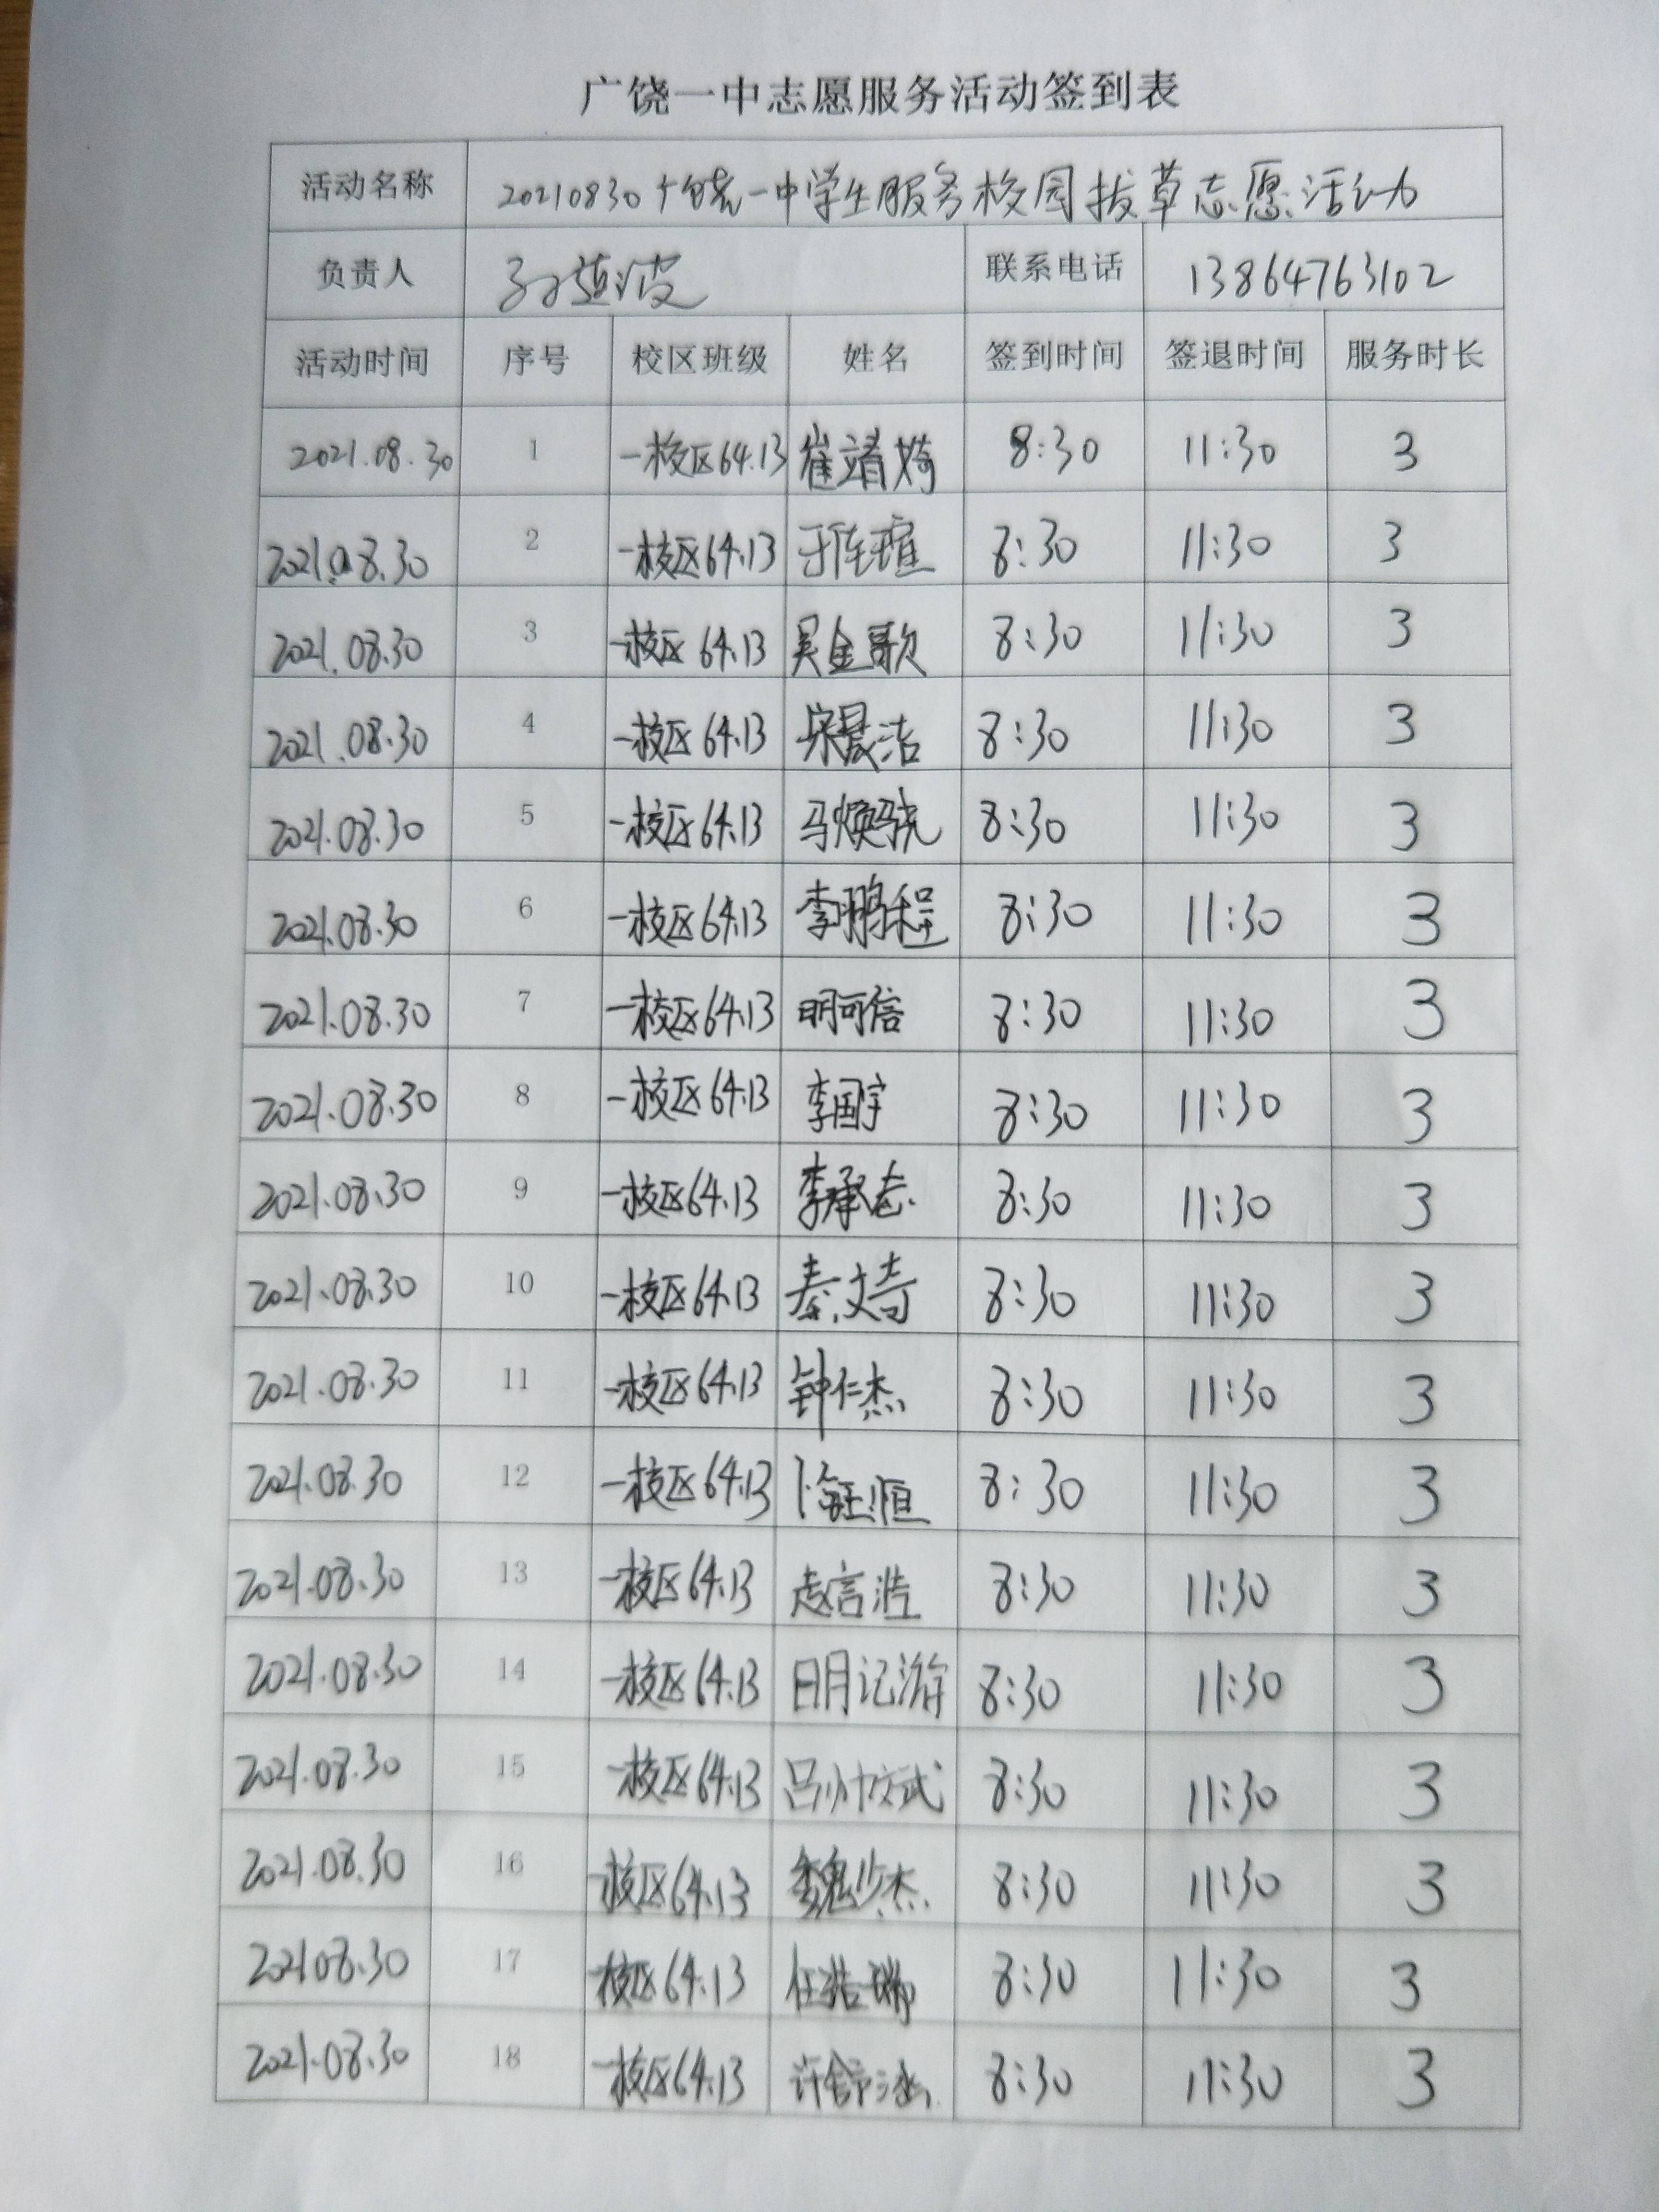 广饶一中志愿服务活动签到表
活动名称 20210830广饶一中学生服务校园拔草志愿活动
负责人 联系电话 13864763102
活动时间 序号 校区班级 姓名 签到时间 签退时间 服务时长
2021.08.30 1 一校区64.13 崔靖婍 8:30 11:30 3
2021.08.30 2 一校区64.13 8:30 11:30 3
2021.08.30 3 一校区64.13 吴金歌 8:30 11:30 3
2021.08.30 4 一校区64.13 宋晟洁 8:30 11:30 3
2021.08.30 5 一校区64.13 马焕骁 8:30 11:30 3
2021.08.30 6 一校区64.13 李鹏程 8:30 11:30 3
2021.08.30 7 一校区64.13 明可信 8:30 11:30 3
2021.08.30 8 一校区64.13 李国宇 8:30 11:30 3
2021.08.30 9 一校区64.13 李承志 8:30 11:30 3
2021.08.30 10 一校区64.13 秦文奇 8:30 11:30 3
2021.08.30 11 一校区64.13 钟仁杰 8:30 11:30 3
2021.08.30 12 一校区64.13 8:30 11:30 3
2021.08.30 13 一校区64.13 赵言浩 8:30 11:30 3
2021.08.30 14 一校区64.13 明记游 8:30 11:30 3
2021.08.30 15 一校区64.13 吕帅文武 8:30 11:30 3
2021.08.30 16 一校区64.13 魏少杰 8:30 11:30 3
2021.08.30 17 一校区64.13 任浩瑞 8:30 11:30 3
2021.08.30 18 一校区64.13 许舒涵 8:30 11:30 3